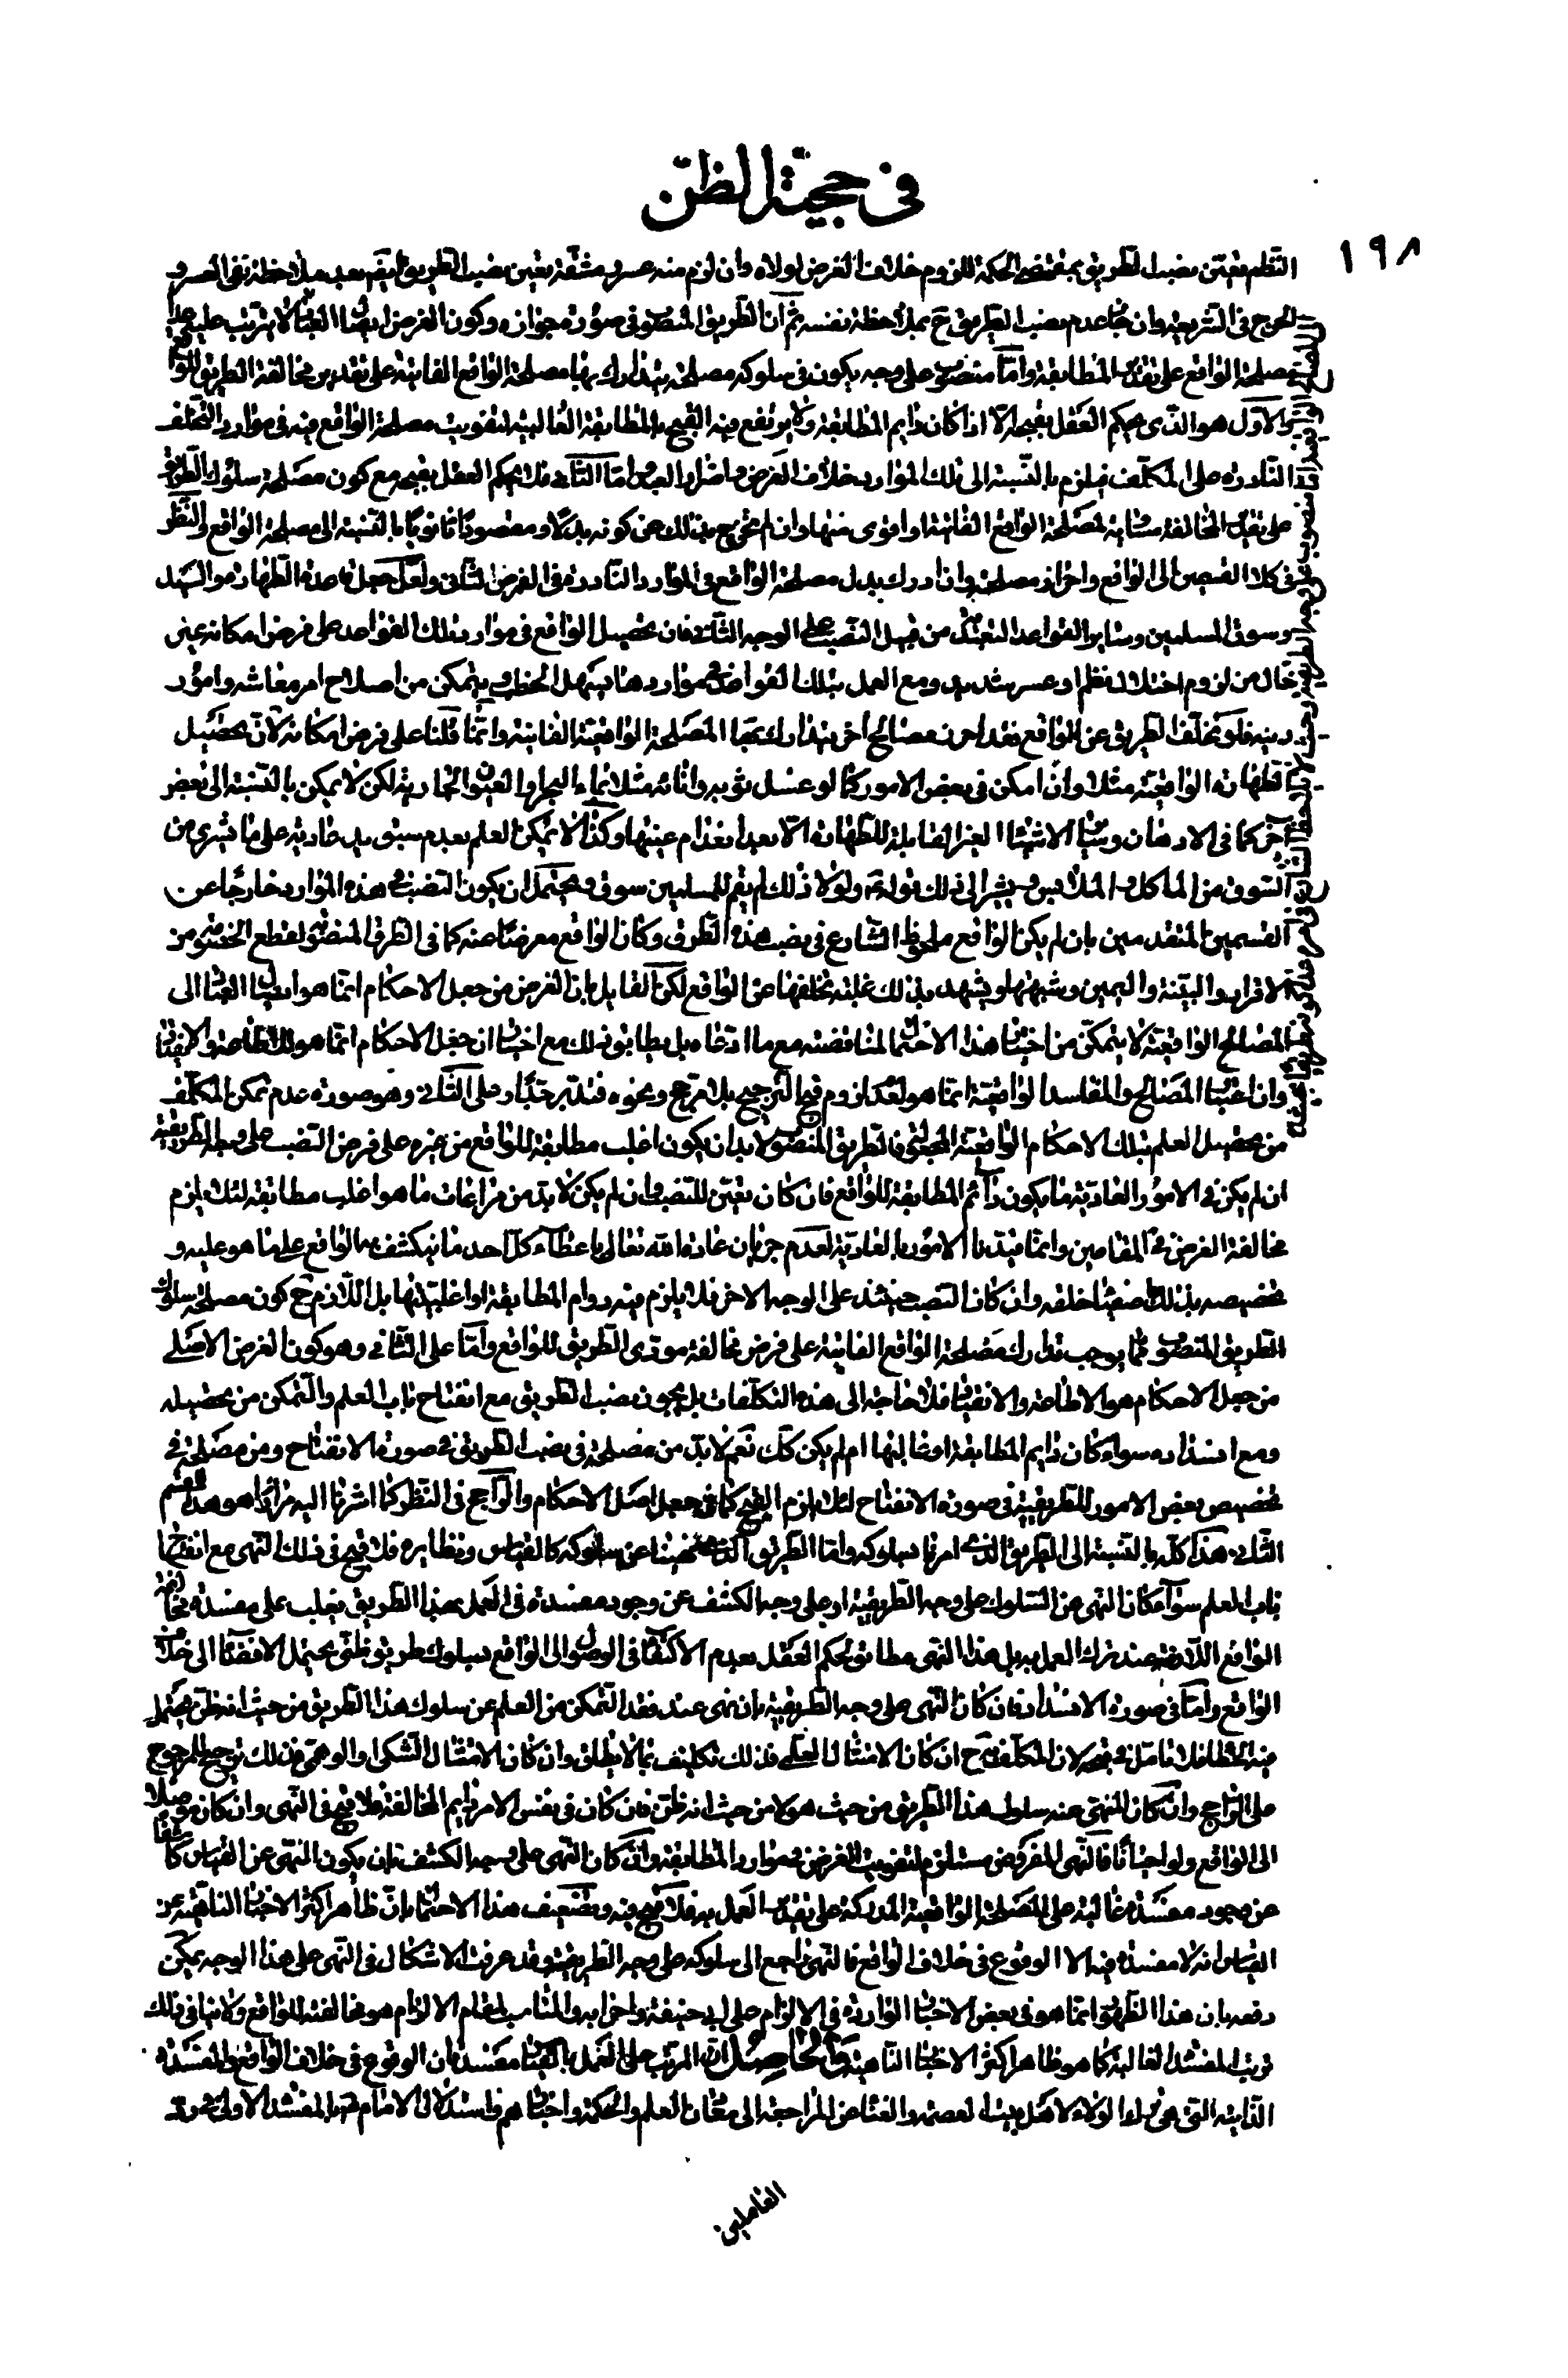 في حجية الظن
١٩٨
النظم فيتعين نصب الطريق بمقتضى الحكمة للزوم خلاف الغرض لولاه وان لزم منه عسر ومشقة يتعين نصب الطريق ايضا بعد ملاحظة نفي العسر و
الحرج في الشريعة وان جاز عدم نصب الطريق ح بملاحظة نفسه ثم ان الطريق المنصوب في صورة جوازه وكون الغرض ايصال العباد لا يترتب عليه
مصلحة الواقع على تقدير المطابقة واما منصوب على وجه يكون في سلوكه مصلحة يتدارك بها مصلحة الواقع الفائتة على تقدير مخالفة الطريق للواقع
والاول هو الذى يحكم العقل بقبحه الا اذا كان دايم المطابقة ولا يرتفع فيه القبح بالمطابقة الغالبية لتفويت مصلحة الواقع فيه في موارد التخلف
النادرة على المكلف فيلزم بالنسبة الى تلك الموارد خلاف الغرض واضرار العبد واما الثاني فلا يحكم العقل بقبحه مع كون مصلحة سلوك الطريق
على تقدير المخالفة مساوية لمصلحة الواقع الفائتة او اقوى منها وان لم تخرج بذلك عن كونه بدلا ومقصودا ثانويا بالنسبة الى مصلحة الواقع والنظر
في كلا القسمين الى الواقع واحراز مصلحته وان ادرك بدل مصلحة الواقع في الموارد النادرة في الفرض الثاني ولعل جعل قاعدة الطهارة واليد
وسوق المسلمين وساير القواعد التعبدية من قبيل النصب على الوجه الثاني فان تحصيل الواقع في موارد تلك القواعد على فرض امكانه غير
خال من لزوم اختلال نظم او عسر شديد ومع العمل بتلك القواعد في مواردها يسهل الخطب ويتمكن من اصلاح امر معاشه وامور
دينه فلو تخلف الطريق عن الواقع فقد احرز مصالح اخر يتدارك بها المصلحة الواقعية الفائتة وانما قلنا على فرض امكانه لان تحصيل
الطهارة الواقعية مثلا وان امكن في بعض الامور كما لو غسل ثوبه واناءه مثلا بماء البحار والعيون الجارية لكن لا يمكن بالنسبة الى بعض
آخر كما في الادهان وساير الاشياء الغير القابلة للطهارة الا بعد انعدام عينها وكذا لا يمكن العلم بعدم سبق يد عادية على ما يشترى من
السوق من المأكل والملابس ويشير الى ذلك قوله ع ولولا ذلك لم يقم للمسلمين سوق ويحتمل ان يكون النصب في هذه الموارد خارجا عن
القسمين المتقدمين بان لم يكن الواقع ملحوظ الشارع في نصب هذه الطرق وكان الواقع معرضا عنه كما في الطرق المنصوبة لقطع الخصومة من
الاقرار والبينة واليمين وشبهها ويشهد بذلك غلبة تخلفها عن الواقع لكن القايل بان الغرض من جعل الاحكام انما هو ايصال العباد الى
المصالح الواقعية لا يتمكن من اختيار هذا الاحتمال لمناقضته مع ما ادعاه بل يطابق ذلك مع اختيار ان جعل الاحكام انما هو للاطاعة والانقياد
وان اعتبار المصالح والمفاسد الواقعية انما هو لعدم لزوم قبح الترجيح بلا مرجح ونحوه فتدبر جدا وعلى الثاني وهو صورة عدم تمكن المكلف
من تحصيل العلم بتلك الاحكام الواقعية المجعولة فالطريق المنصوب لا بد ان يكون اغلب مطابقة للواقع من غيره على فرض النصب على وجه الطريقية
ان لم يكن في الامور العادية ما يكون دائم المطابقة للواقع فان كان يتعين للنصب وان لم يكن لا بد من مراعات ما هو اغلب مطابقة لئلا يلزم
مخالفة الغرض في المقامين وانما قيدنا الامور بالعادية لعدم جريان عادة الله تعالى باعطاء كل احد ما ينكشف به الواقع على ما هو عليه و
تخصيصه بذلك اصفياء خلقه وان كان النصب حينئذ على الوجه الاخر فلا يلزم فيه دوام المطابقة او اغلبيتها بل اللازم ح كون مصلحة سلوك
الطريق المنصوب مما يوجب تدارك مصلحة الواقع الفائتة على فرض مخالفة مودى الطريق للواقع واما على الثاني وهو كون الغرض الاصلي
من جعل الاحكام هو الاطاعة والانقياد فلا حاجة الى هذه التكلفات بل يجوز نصب الطريق مع انفتاح باب العلم والتمكن من تحصيله
ومع انسداده سواء كان دايم المطابقة او غالبها ام لم يكن كك نعم لا بد من مصلحة في نصب الطريق في صورة الانفتاح ومن مصلحة في
تخصيص بعض الامور للطريقية في صورة الانفتاح لئلا يلزم القبح كما في جعل اصل الاحكام والراجح في النظر كما اشرنا اليه مرارا هو هذا القسم
الثاني هذا كله بالنسبة الى الطريق الذي امرنا بسلوكه واما الطريق الذي نهينا عن سلوكه كالقياس ونظايره فلا قبح في ذلك النهى مع انفتاح
باب العلم سواء كان النهى عن السلوك على وجه الطريقية او على وجه الكشف عن وجود مفسدة في العمل بهذا الطريق يغلب على مفسدة مخالفة
الواقع اللازمة عند ترك العمل به بل هذا النهى مطابق لحكم العقل بعدم الاكتفاء في الوصول الى الواقع بسلوك طريق ظني يحتمل الافضاء الى خلاف
الواقع واما في صورة الانسداد فان كان النهى على وجه الطريقية بان نهى عند فقد التمكن من العلم عن سلوك هذا الطريق من حيث انه ظن يحتمل
فيه الخطا فلا تامل في قبحه لان المكلف به ح ان كان الامتثال العلمي فذلك تكليف بما لا يطاق وان كان الامتثال الشكى او الوهمى فذلك ترجيح المرجوح
على الراجح وان كان المنهي عنه سلوك هذا الطريق من حيث هو لا من حيث انه ظن فان كان في نفس الامر دايم المخالفة فلا قبح في النهى وان كان موصلا
الى الواقع ولو احيانا فالنهى المفروض مستلزم لتفويت الغرض في موارد المطابقة وان كان النهى على وجه الكشف بان يكون النهى عن القياس كاشفا
عن وجود مفسدة غالبة على المصلحة الواقعية المدركة على تقدير العمل به فلا قبح فيه وتضعيف هذا الاحتمال بان ظاهر اكثر الاخبار الناهية عن
القياس انه لا مفسدة فيه الا الوقوع في خلاف الواقع فالنهى راجع الى سلوكه على وجه الطريقية وقد عرفت الاشكال في النهى على هذا الوجه يمكن
دفعه بان هذا الظهور انما هو في بعض الاخبار الواردة في الالزام على ابي حنيفة واحزابه والمناسب لمقام الالزام هو مخالفته للواقع ولا ينافي ذلك
ترتب المفسدة الغالبة كما هو ظاهر اكثر الاخبار الناهية والحاصل ان المرتب على العمل بالقياس مفسدتان الوقوع في خلاف الواقع والمفسدة
الذاتية التي هي الولاء لاهل بيت العصمة والغناء عن المراجعة الى معادن العلم والحكمة واختيارهم واستدلال الامام ع بالمفسدة الاولى
الفاصلين